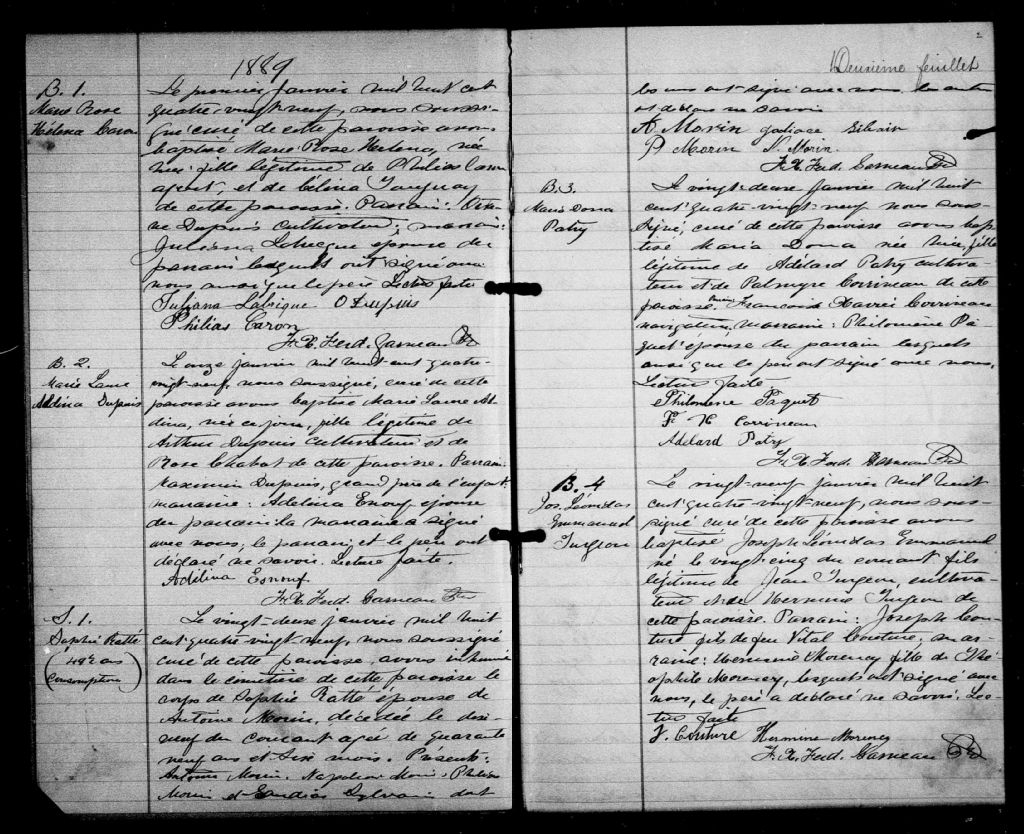 1889
B. 1.
Marie Rose
Hélèna Caron
Le premier janvier mil huit cent
quatre-vingt-neuf, nous soussi-
gné curé de cette paroisse avons
baptisé Marie Rose Helena, née
hier fille légitime de Philias Caron
agent, et de Célina Tanguay
de cette paroisse. Parrain:
Dupuis cultivateur; marraine:
Juliana Labrecque épouse du
parrain lesquels ont signé avec
nous ainsi que le père Lecture faite
Juliana Labrique O Dupuis
Philias Caron
F. X. Ferd. Garneau Ptre
B. 2.
Marie Laure
Aldina Dupuis
Le onze janvier mil huit cent quatre-
vingt-neuf, nous soussigné, curé de cette
paroisse avons baptisé Marie Laure Al-
dina, née ce jour, fille légitime de
Arthur Dupuis cultivateur et de
Rose Chabot de cette paroisse. Parrain:
Maximin Dupuis, grand père de l'enfant:
marraine: Adelina Enouf épouse
du parrain: la marraine a signé
avec nous, le parrain et le père ont
déclaré ne savoir. Lecture faite.
Adilina Esnouf
F. X. Ferd. Garneau Ptre
S. 1.
Sophie Ratté
(49½ ans
Consomption)
Le vingt-deux janvier mil huit
cent quatre-vingt-neuf, nous soussigné
curé de cette paroisse, avons inhumé
dans le cimetière de cette paroisse le
corps de Sophie Ratté épouse de
Antoine Morin, décédée le dix-
neuf du courant agée de quarante
neuf ans et six mois. Présents:
Antoine Morin, Napoléon Morin, Philias
Morin et Sylvain dont
2
Deuxième feuillet
les uns ont signé avec nous les autres
ont déclaré ne savoir
A. Morin Silvain
P Morin N. Morin
F. X. Ferd. Garneau Ptre
B. 3.
Marie Dona
Patry
Le vingt-deux janvier mil huit
cent quatre-vingt-neuf nous sous-
signé, curé de cette paroisse avons bap-
tisé Maria Dona née hier, fille
légitime de Adélard Patry cultiva-
teur et de Palmyre Corriveau de cette
paroisse. Parrain: François Xavier Corriveau
navigateur, marraine: Philomène Pa-
quet épouse du parrain lesquels
ainsi que le père ont signé avec nous.
Lecture faite.
Philomène Paquet
F X Corriveau
Adélard Patry
F. X. Ferd. Garneau Ptre
B. 4
Jos. Léonidas
Emmanuel
Turgeon
Le vingt-neuf janvier mil huit
cent quatre-vingt-neuf, nous sous-
signé curé de cette paroisse avons
baptisé Joseph Léonidas Emmanuel
né le vingt cinq du courant fils
légitime de Jean Turgeon, cultiva-
teur et de Hermine Turgeon de
cette paroisse. Parrain: Joseph Cou-
ture fils de feu Vital Couture, mar-
raine: Hermine Morency fille de Thé-
ophile Morency, lesquels ont signé avec
nous, le père a déclaré ne savoir. Lec-
ture faite
J. Couture Hermine Morency
F. X. Ferd. Garneau Ptre